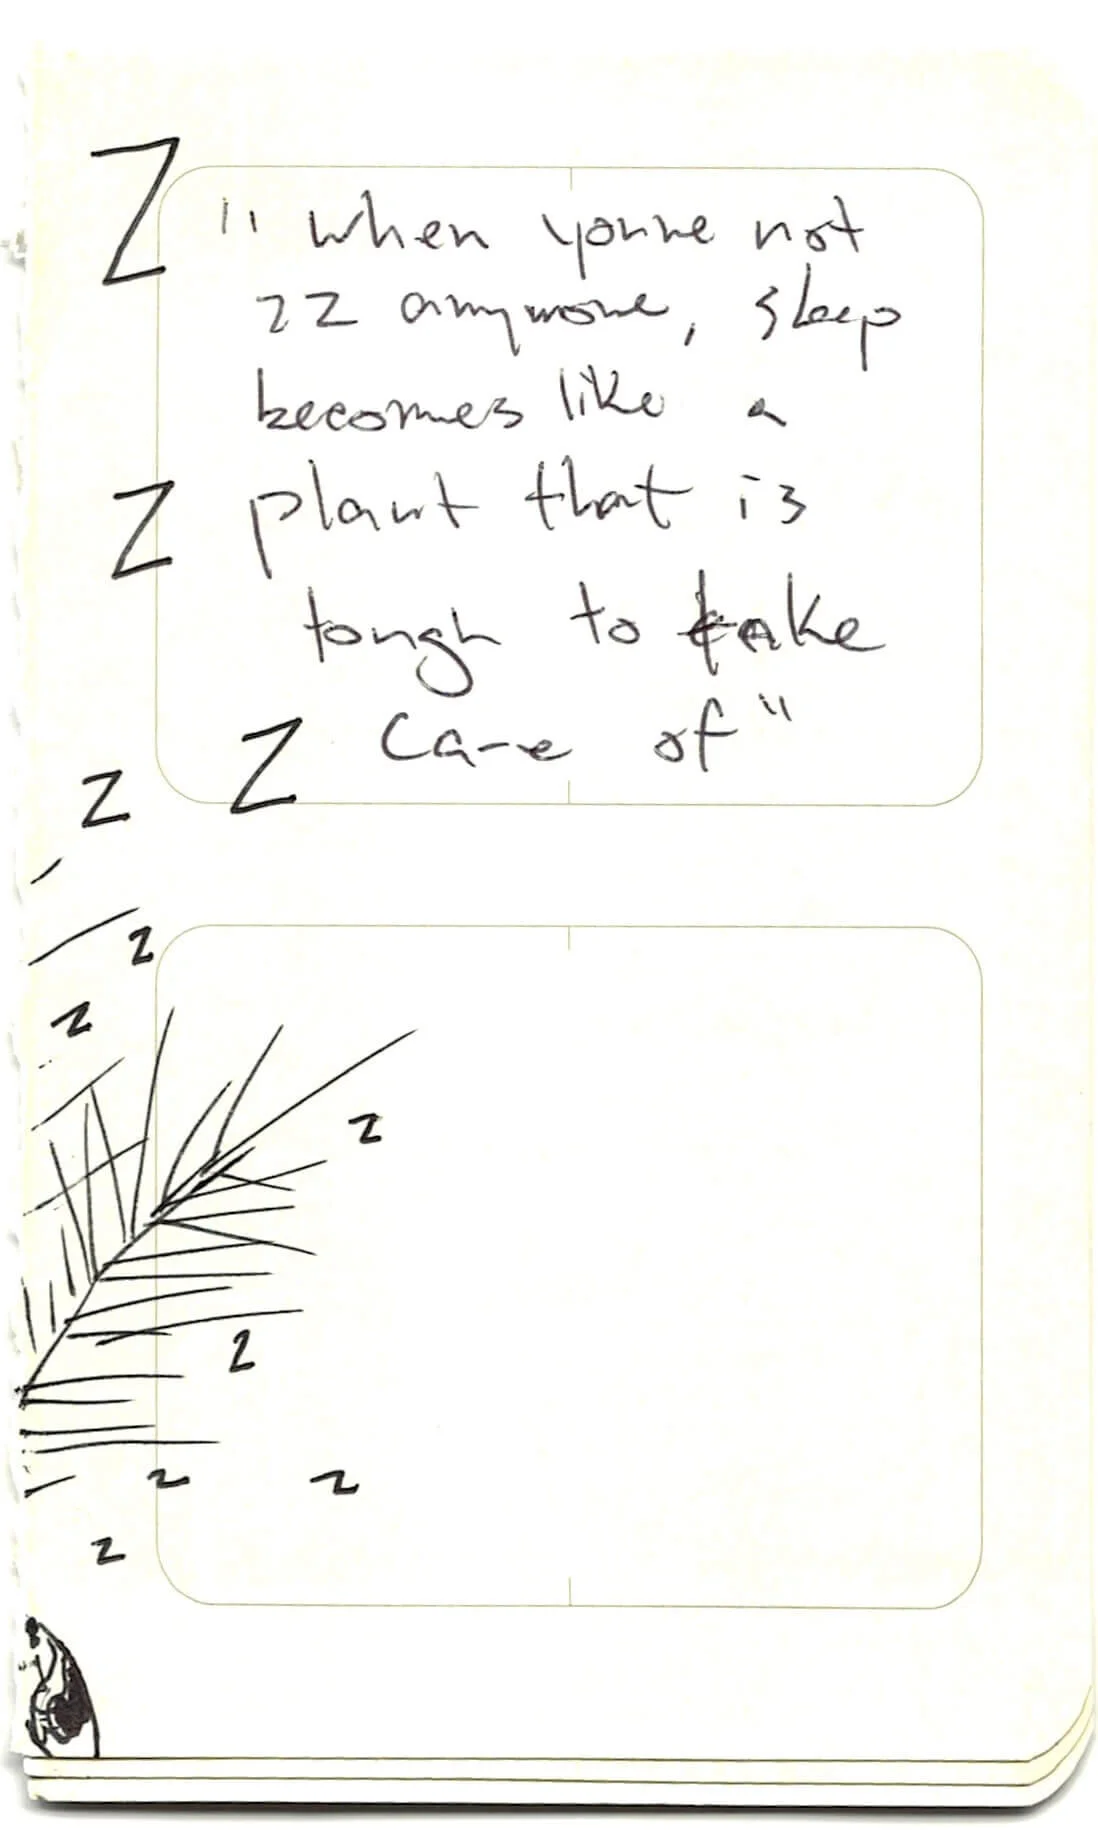 Z
"when you're not
22 anymore, sleep
becomes like a
Z
plant that is
tough to take
care of"
Z
Z
z
z
z
z
z
z
z